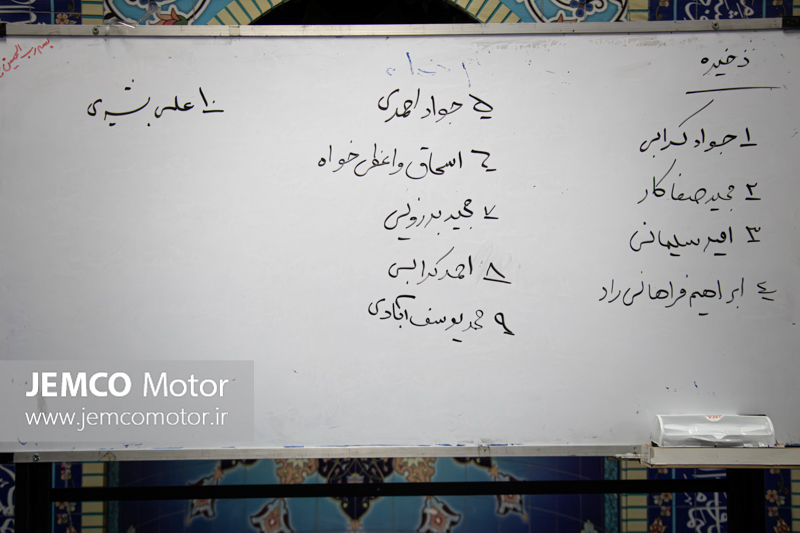 ذخیره
۱ جواد کدابی
۲ مجید صفاکار
۳ امید سلیمانی
۴ ابراهیم فراهانی راد
۵ جواد احمدی
۶ اسحاق واعظی خواه
۷ مجید بدرزویی
۸ احمد کدابی
۹ محمد یوسف آبادی
۱۰ علی بشیری
JEMCO Motor
www.jemcomotor.ir